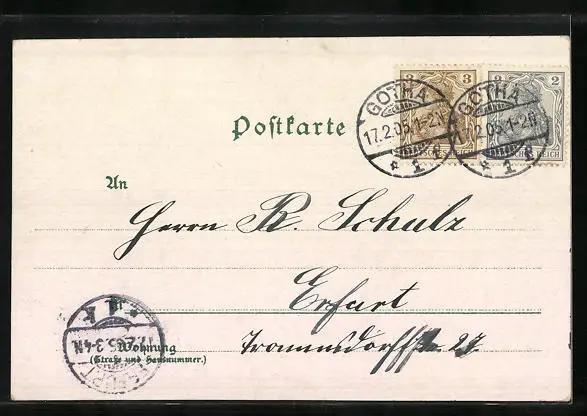 3 3
2 2
GOTHA
17.2.05.1-2N
* 1 *
DEUTSCHES REICH
GOTHA
17.2.05.1-2N
* 1 *
REICH
Postkarte
An
Herrn R. Schulz
Erfurt
Trommsdorffstr. 27
Wohnung
(Straße und Hausnummer.)
ERFURT
17.2.05.3-4N.
* 1 k